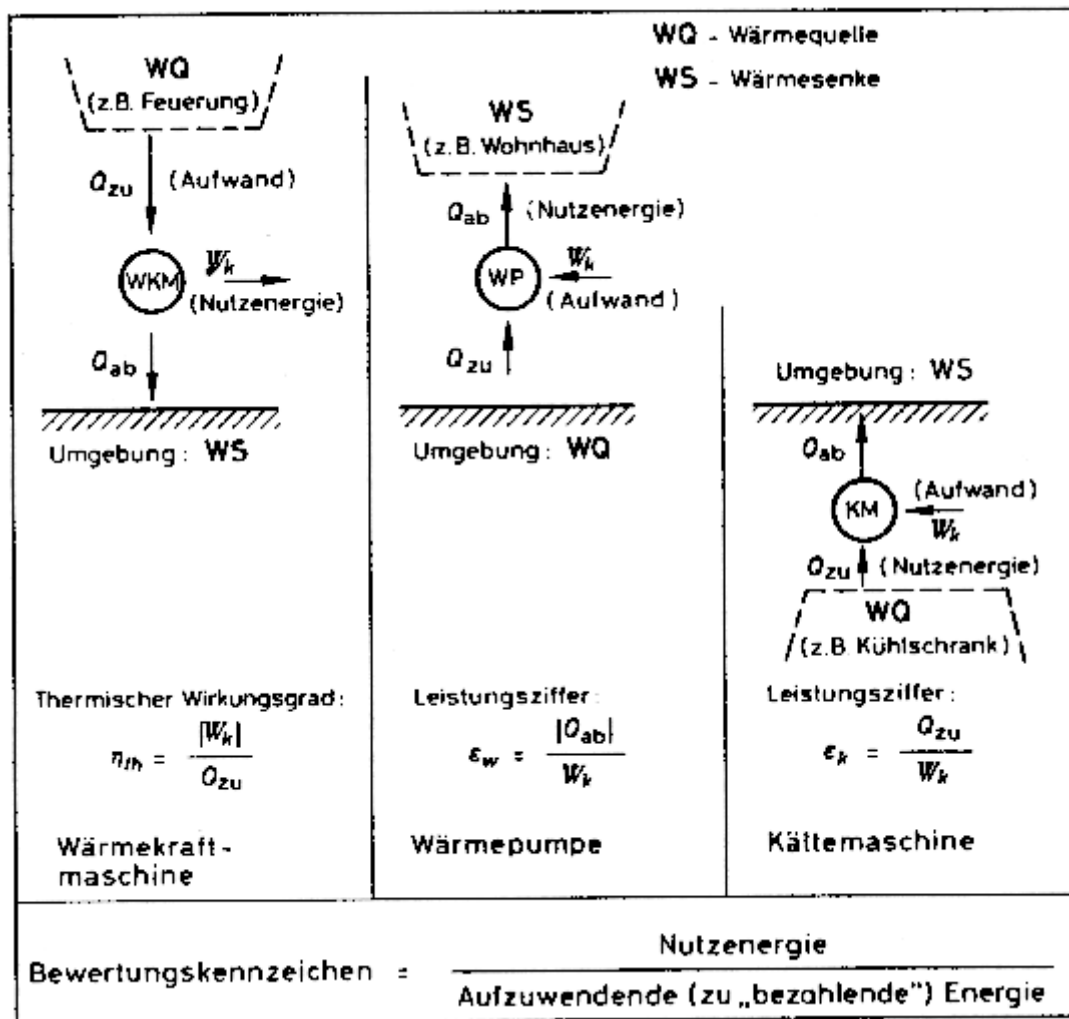 WQ - Wärmequelle
WS - Wärmesenke
WQ
(z.B. Feuerung)
Q_zu (Aufwand)
WKM
W_k
(Nutzenergie)
Q_ab
Umgebung: WS
Thermischer Wirkungsgrad:
η_th = |W_k| / Q_zu
Wärmekraft-
maschine
WS
(z.B. Wohnhaus)
Q_ab (Nutzenergie)
WP
W_k
(Aufwand)
Q_zu
Umgebung: WQ
Leistungsziffer:
ε_w = |Q_ab| / W_k
Wärmepumpe
Umgebung: WS
Q_ab
KM
(Aufwand)
W_k
Q_zu (Nutzenergie)
WQ
(z.B. Kühlschrank)
Leistungsziffer:
ε_k = Q_zu / W_k
Kältemaschine
Bewertungskennzeichen = Nutzenergie / Aufzuwendende (zu „bezahlende") Energie